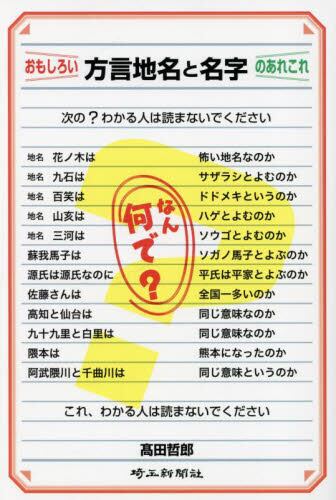 おもしろい 方言地名と名字 のあれこれ
次の？わかる人は読まないでください
地名 花ノ木は 怖い地名なのか
地名 九石は サザラシとよむのか
地名 百笑は ドドメキというのか
地名 山亥は ハゲとよむのか
地名 三河は ソウゴとよむのか
蘇我馬子は ソガノ馬子とよぶのか
源氏は源氏なのに 平氏は平家とよぶのか
佐藤さんは 全国一多いのか
高知と仙台は 同じ意味なのか
九十九里と白里は 同じ意味なのか
隈本は 熊本になったのか
阿武隈川と千曲川は 同じ意味というのか
なん
何で？
これ、わかる人は読まないでください
髙田哲郎
埼玉新聞社